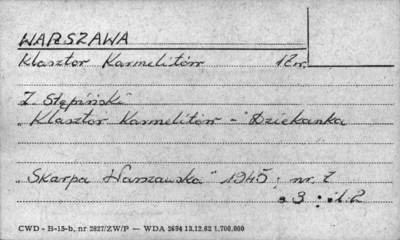 WARSZAWA
Klasztor Karmelitów 18w.
Z. Stępiński
„Klasztor Karmelitów - Dziekanka
„Skarpa Warszawska" 1945, nr. 2
s 3 : il. 2
CWD - B-15-b, nr 2827/ZW/P — WDA 2694 13.12.62 1.700.000